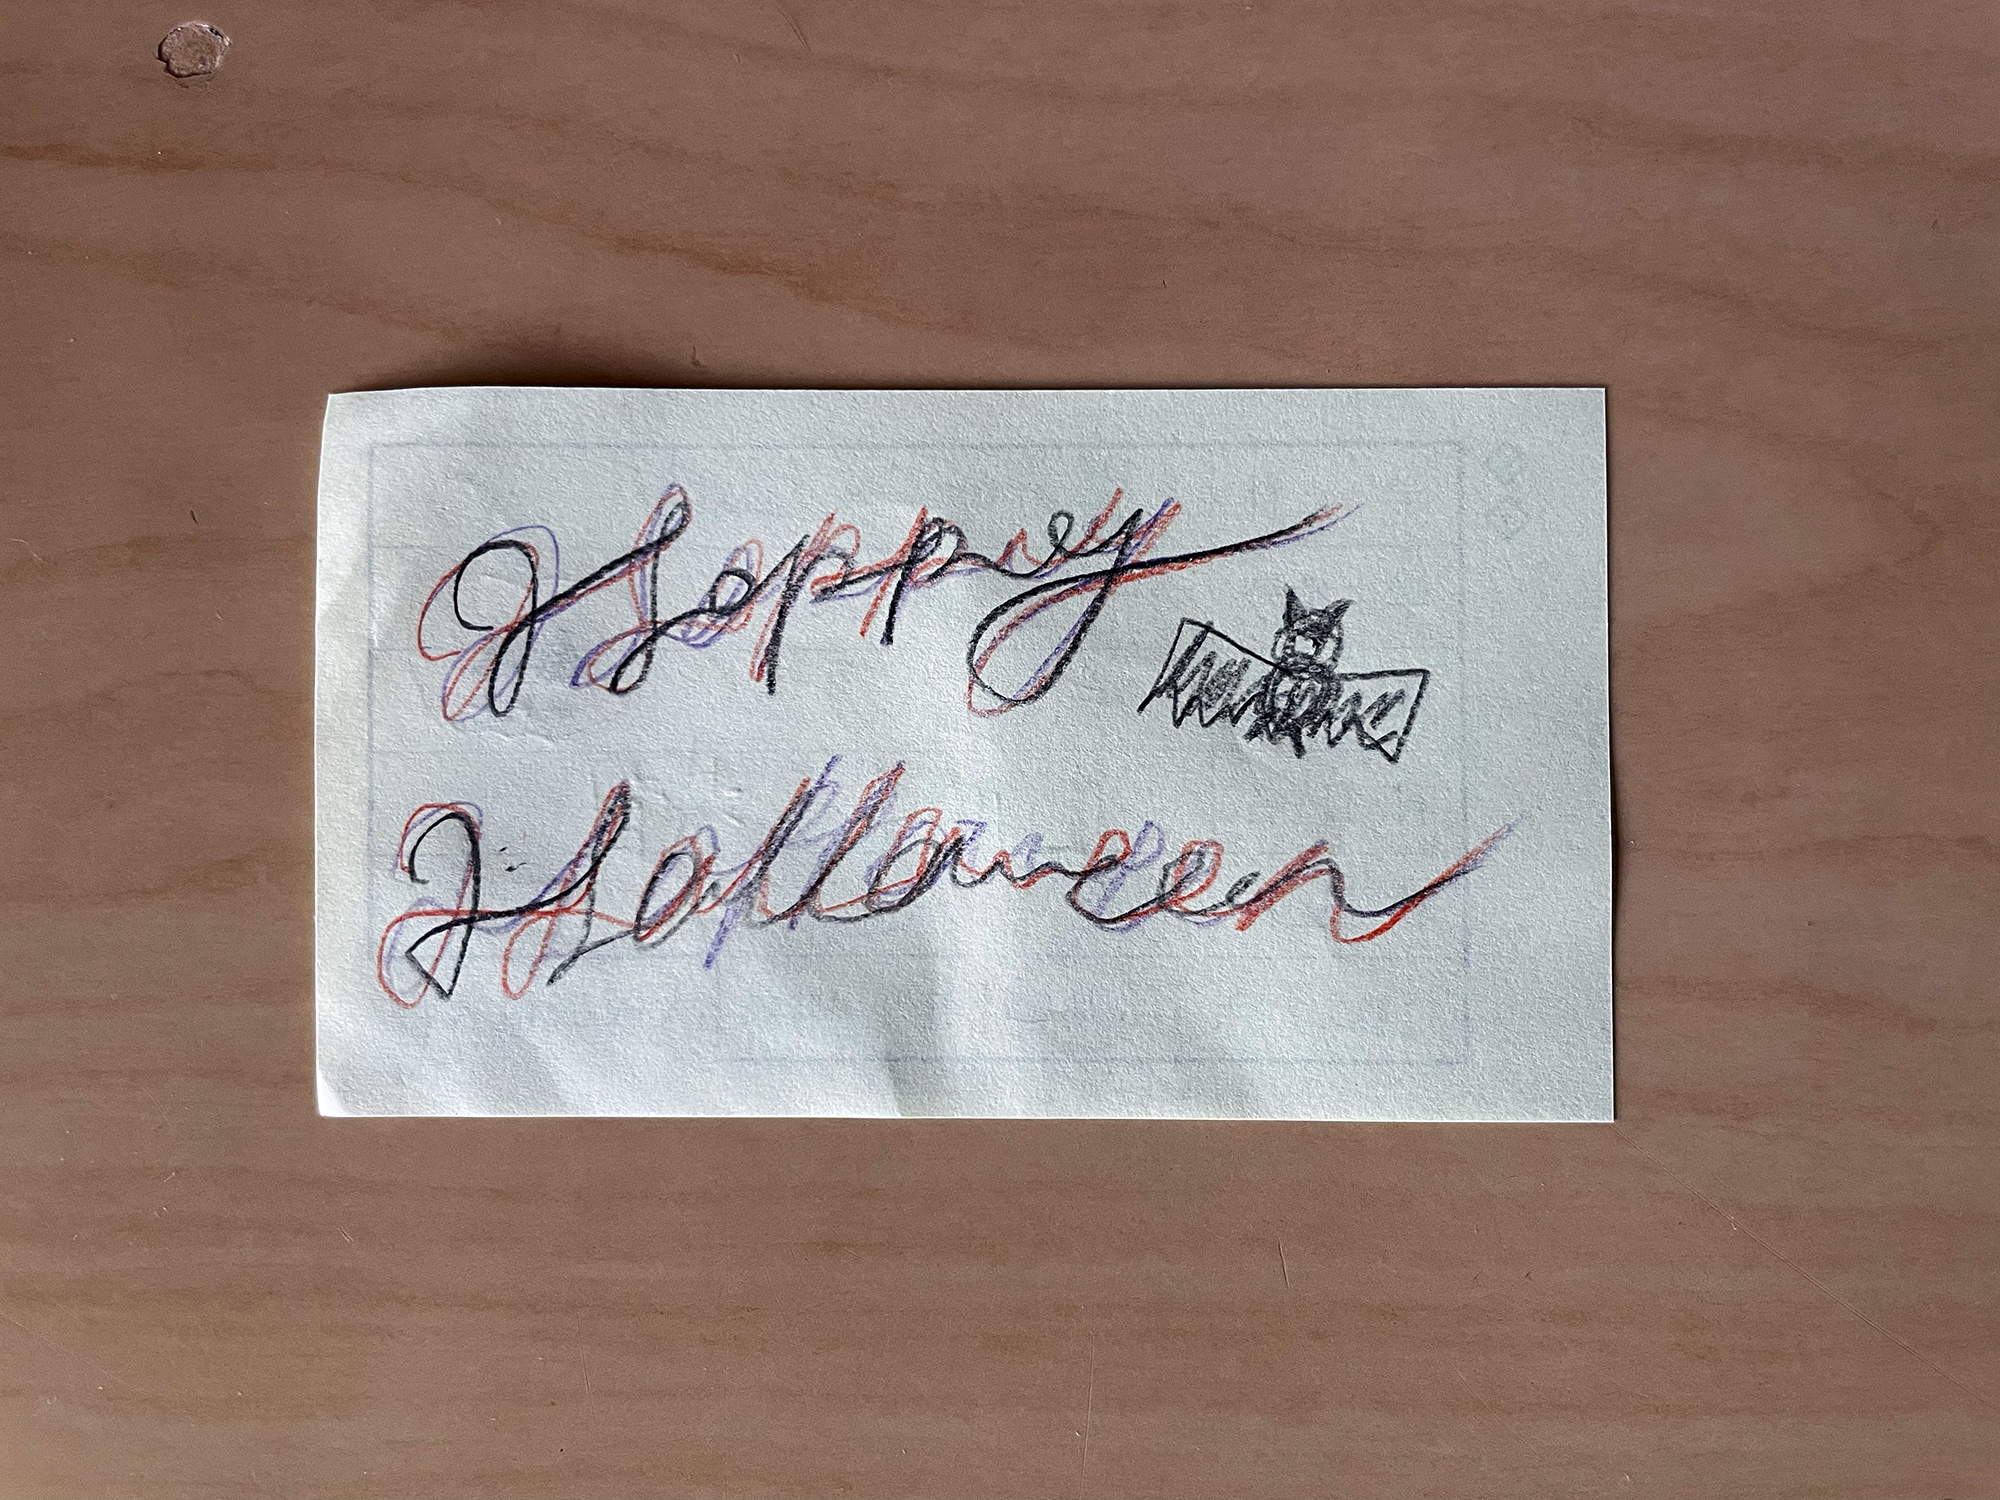 Happy
Halloween